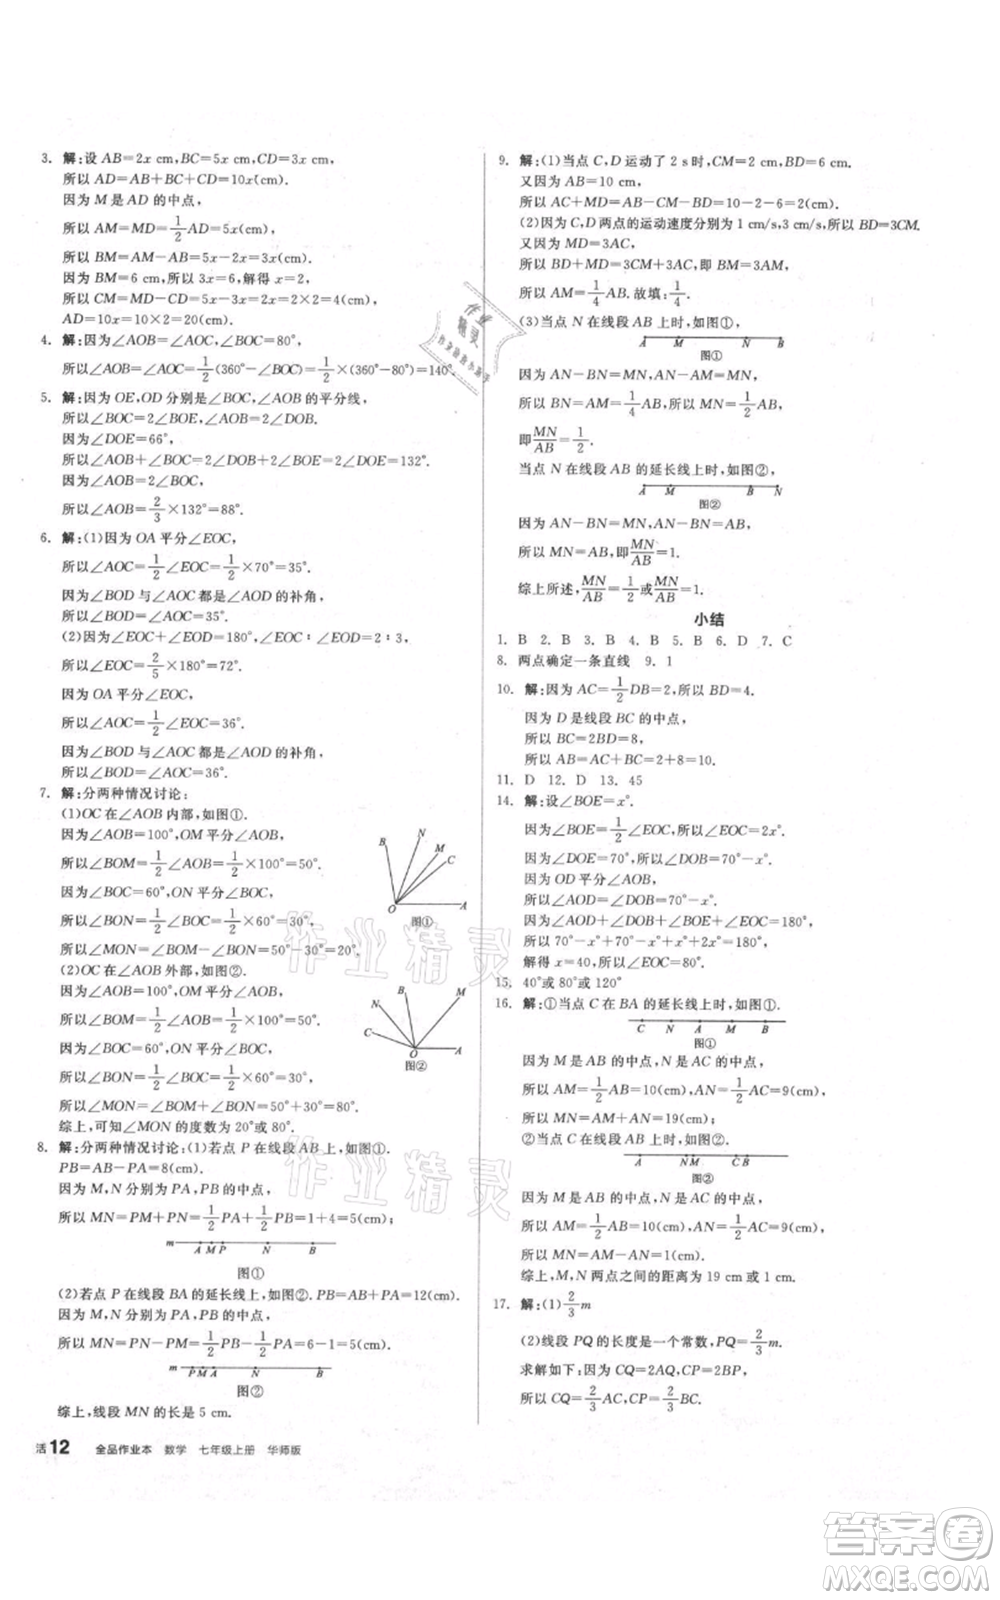 3. 解:设 AB=2x cm,BC=5x cm,CD=3x cm,
所以 AD=AB+BC+CD=10x(cm).
因为 M 是 AD 的中点,
所以 AM=MD=1/2AD=5x(cm).
所以 BM=AM-AB=5x-2x=3x(cm).
因为 BM=6 cm,所以 3x=6,解得 x=2.
所以 CM=MD-CD=5x-3x=2x=4(cm),
AD=10x=10×2=20(cm).
4. 解:因为∠AOB=∠AOC,∠BOC=80°,
所以∠AOB=∠AOC=1/2(360°-∠BOC)=1/2×(360°-80°)=140°.
5. 解:因为 OE,OD 分别是∠BOC,∠AOB 的平分线,
所以∠BOC=2∠BOE,∠AOB=2∠DOB.
因为∠DOE=66°,
所以∠AOB+∠BOC=2∠DOB+2∠BOE=2∠DOE=132°.
因为∠AOB=2∠BOC,
所以∠AOB=2/3×132°=88°.
6. 解:(1)因为 OA 平分∠EOC,
所以∠AOC=1/2∠EOC=1/2×70°=35°.
因为∠BOD 与∠AOC 都是∠AOD 的补角,
所以∠BOD=∠AOC=35°.
(2)因为∠EOC+∠EOD=180°,∠EOC∶∠EOD=2∶3,
所以∠EOC=2/5×180°=72°.
因为 OA 平分∠EOC,
所以∠AOC=1/2∠EOC=36°.
因为∠BOD 与∠AOC 都是∠AOD 的补角,
所以∠BOD=∠AOC=36°.
7. 解:分两种情况讨论:
(1)OC 在∠AOB 内部,如图①.
因为∠AOB=100°,OM 平分∠AOB,
所以∠BOM=1/2∠AOB=1/2×100°=50°.
因为∠BOC=60°,ON 平分∠BOC,
所以∠BON=1/2∠BOC=1/2×60°=30°.
所以∠MON=∠BOM-∠BON=50°-30°=20°.
B N M C O A
图①
(2)OC 在∠AOB 外部,如图②.
因为∠AOB=100°,OM 平分∠AOB,
所以∠BOM=1/2∠AOB=1/2×100°=50°.
因为∠BOC=60°,ON 平分∠BOC,
所以∠BON=1/2∠BOC=1/2×60°=30°,
所以∠MON=∠BOM+∠BON=50°+30°=80°.
综上,可知∠MON 的度数为20°或80°.
N B M C O A
图②
8. 解:分两种情况讨论:(1)若点 P 在线段AB上,如图①.
PB=AB-PA=8(cm).
因为 M,N 分别为 PA,PB 的中点,
所以 MN=PM+PN=1/2PA+1/2PB=1+4=5(cm);
m A M P N B
图①
(2)若点 P 在线段 BA 的延长线上,如图②.PB=AB+PA=12(cm).
因为 M,N 分别为 PA,PB 的中点,
所以 MN=PN-PM=1/2PB-1/2PA=6-1=5(cm).
m P M A N B
图②
综上,线段 MN 的长是 5 cm.
活12 全品作业本 数学 七年级上册 华师版
9. 解:(1)当点 C,D 运动了 2 s时,CM=2 cm,BD=6 cm.
又因为 AB=10 cm,
所以 AC+MD=AB-CM-BD=10-2-6=2(cm).
(2)因为C,D 两点的运动速度分别为1 cm/s,3 cm/s,所以 BD=3CM.
又因为 MD=3AC,
所以 BD+MD=3CM+3AC,即 BM=3AM,
所以 AM=1/4AB.故填:1/4.
(3)当点 N在线段AB上时,如图①,
A M N B
图①
因为 AN-BN=MN,AN-AM=MN,
所以 BN=AM=1/4AB,所以 MN=1/2AB,
即MN/AB=1/2.
当点 N 在线段 AB 的延长线上时,如图②,
A M B N
图②
因为 AN-BN=MN,AN-BN=AB,
所以 MN=AB,即MN/AB=1.
综上所述,MN/AB=1/2或MN/AB=1.
小结
1. B 2. B 3. B 4. B 5. B 6. D 7. C
8. 两点确定一条直线 9. 1
10. 解:因为 AC=1/2DB=2,所以 BD=4.
因为 D是线段 BC 的中点,
所以 BC=2BD=8,
所以 AB=AC+BC=2+8=10.
11. D 12. D 13. 45
14. 解:设∠BOE=x°.
因为∠BOE=1/2∠EOC,所以∠EOC=2x°.
因为∠DOE=70°,所以∠BOD=70°-x°.
因为 OD 平分∠AOB,
所以∠AOD=∠BOD=70°-x°.
因为∠AOD+∠DOB+∠BOE+∠EOC=180°,
所以70°-x°+70°-x°+x°+2x°=180°,
解得 x=40,所以∠EOC=80°.
15. 40°或 80°或 120°
16. 解:①当点 C 在 BA 的延长线上时,如图①.
C N A M B
图①
因为 M 是 AB 的中点,N 是 AC 的中点,
所以 AM=1/2AB=10(cm),AN=1/2AC=9(cm),
所以 MN=AM+AN=19(cm);
②当点 C 在线段 AB 上时,如图②.
A NM C B
图②
因为 M 是 AB 的中点,N 是 AC 的中点,
所以 AM=1/2AB=10(cm),AN=1/2AC=9(cm),
所以 MN=AM-AN=1(cm).
综上,M,N 两点之间的距离为 19 cm 或 1 cm.
17. 解:(1)2/3m
(2)线段 PQ 的长度是一个常数,PQ=2/3m.
求解如下:因为 CQ=2AQ,CP=2BP,
所以 CQ=2/3AC,CP=2/3BC.
作业精灵
作业精灵
作业精灵
答案卷
MXQE.COM